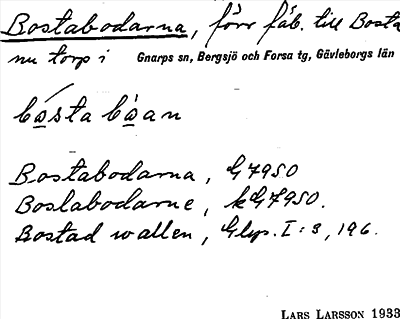 Bostabodarna, förr fäb. till Bosta
nu torp i Gnarps sn, Bergsjö och Forsa tg, Gävleborgs län
bo̲sta bo̲an
Bostabodarna, G7950
Boslabodarne, kG7950.
Bostad wallen, Glxp. I:3, 196.
LARS LARSSON 1933